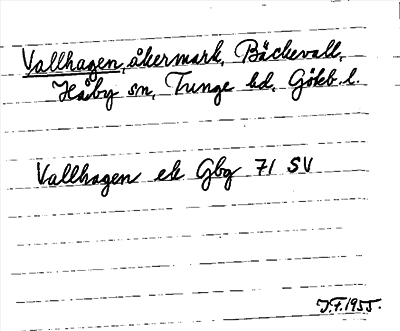 Vallhagen, åkermark, Bäckevall,
Håby sn, Tunge hd, Göteb. l.
Vallhagen ek Gbg 71 SV
J.F. 1955.